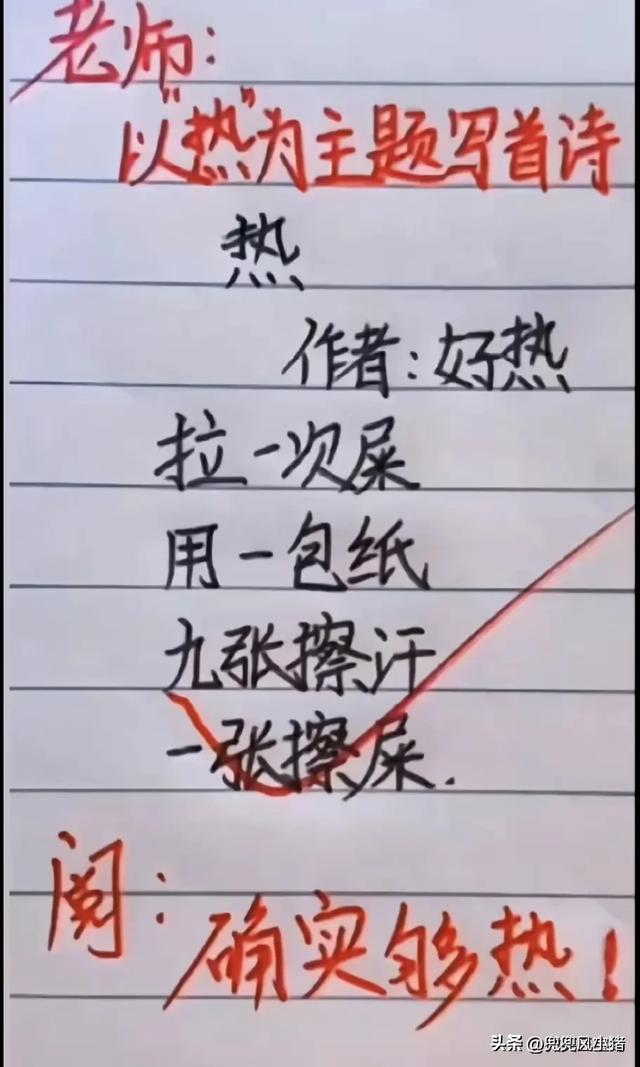 老师:
以“热”为主题写首诗
热
作者:好热
拉一次屎
用一包纸
九张擦汗
一张擦屎.
阅:
确实够热!
头条 @兜兜风土猪